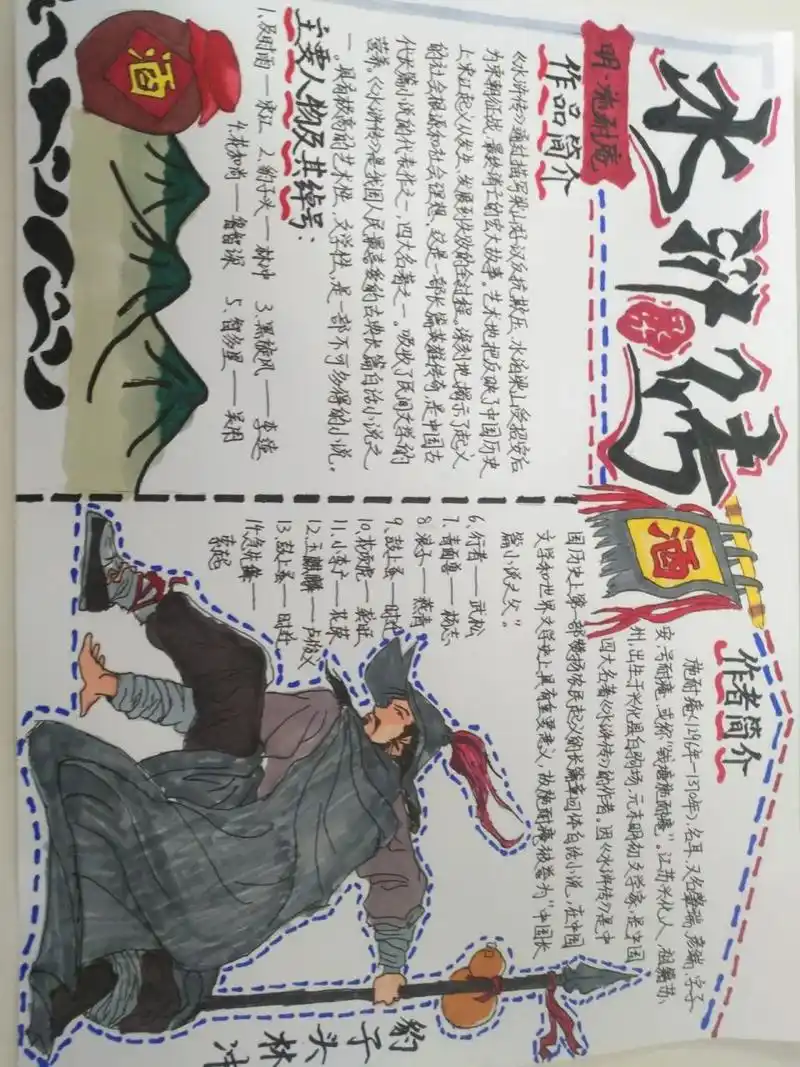 水浒传
明·施耐庵
作品简介
《水浒传》通过描写梁山好汉反抗欺压、水泊梁山受招安后
为宋朝征战,最终消亡的宏大故事。艺术地把反映了中国历史
上宋江起义从发生、发展到失败的全过程。深刻地揭示了起义
的社会根源和社会理想。这是一部长篇英雄传奇,是中国古
代长篇小说的代表作之一,四大名著之一。吸收了民间文学的
营养。《水浒传》是我国人民最喜爱的古典长篇白话小说之
一。具有极高的艺术性、文学性、是一部不可多得的小说。
主要人物及其绰号:
1、及时雨——宋江 2、豹子头——林冲 3、黑旋风——李逵
4、花和尚——鲁智深 5、智多星——吴用
酒
酒
作者简介
施耐庵(1296年—1370年),名耳、又名肇瑞、彦端,字子
安,号耐庵,或称“钱塘施耐庵”。江苏兴化人,祖籍苏
州,出生于兴化县白驹场,元末明初文学家,是中国
四大名著《水浒传》的作者。因《水浒传》是中
国历史上第一部褒扬农民起义的长篇章回体白话小说,在中国
文学和世界文学史上具有重要意义,故施耐庵被誉为“中国长
篇小说之父”。
6、行者——武松
7、青面兽——杨志
8、浪子——燕青
9、鼓上蚤——时迁
10、花项虎——龚旺
11、小李广——花荣
12、玉麒麟——卢俊义
13、鼓上蚤——时迁
14、急先锋——
索超
豹子头林冲